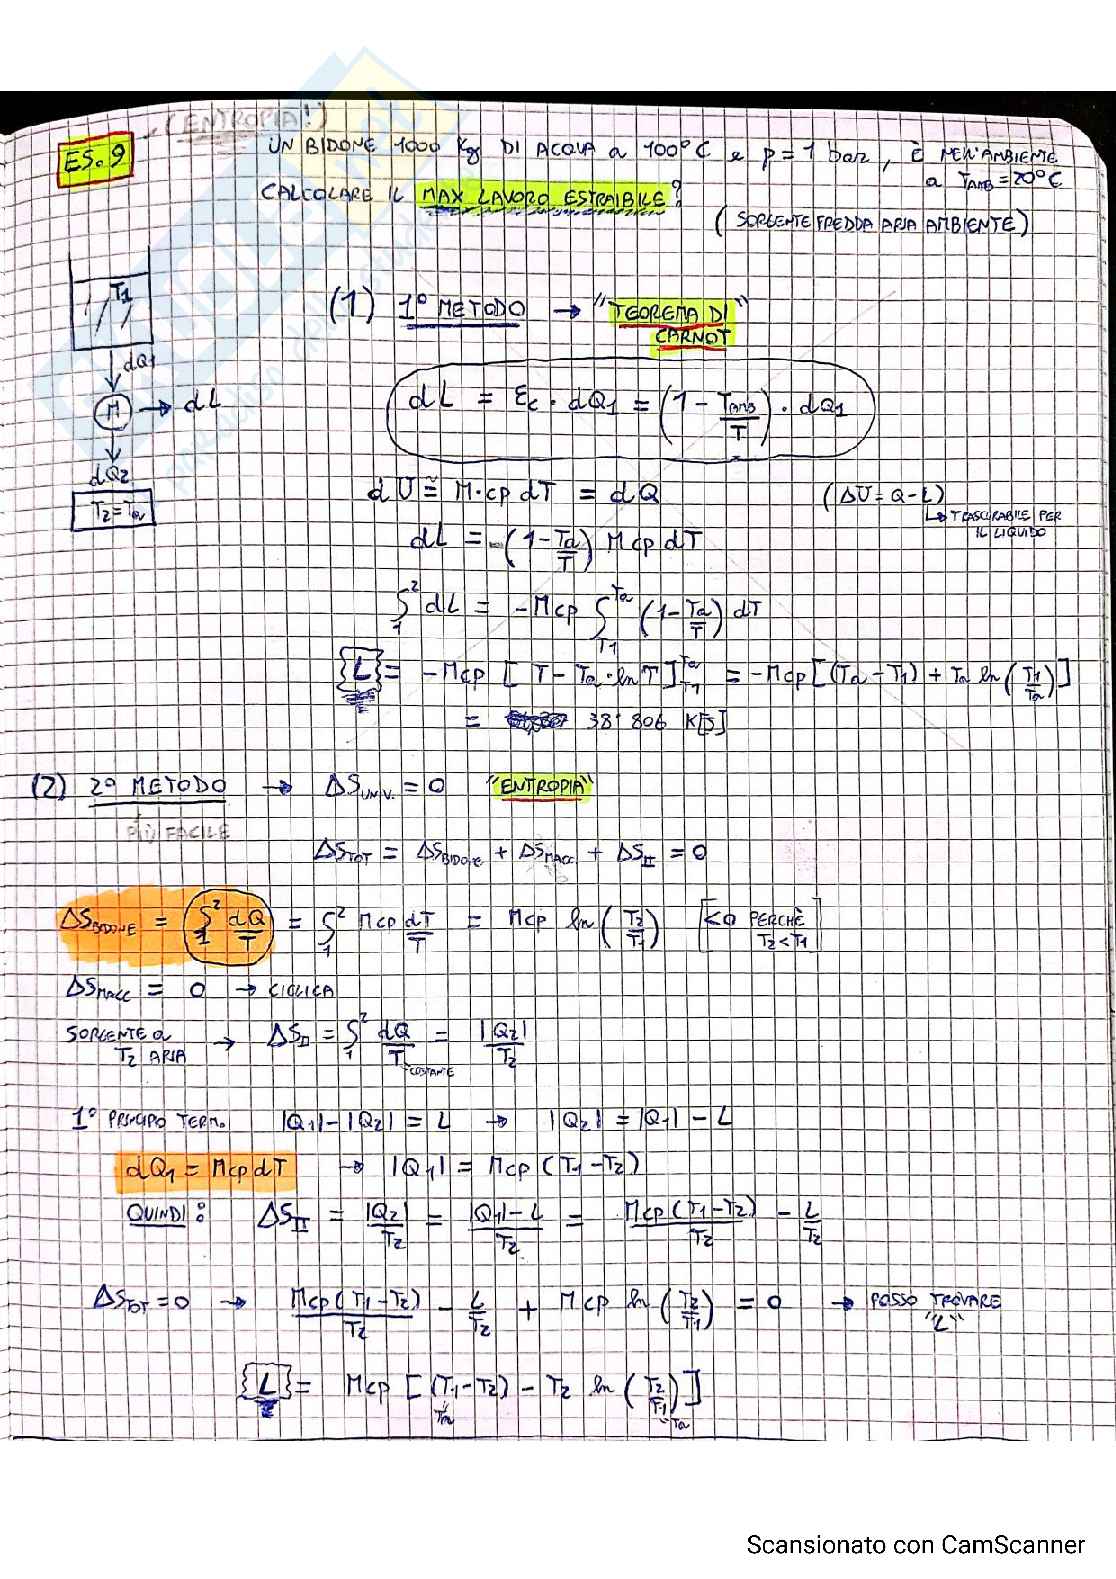 (ENTROPIA!)
ES. 9
UN BIDONE 1000 Kg DI ACQUA a 100°C e p = 1 bar, È NELL'AMBIENTE
a TAMB = 20°C
CALCOLARE IL MAX LAVORO ESTRAIBILE?
(SORGENTE FREDDA ARIA AMBIENTE)
T1
dQ1
M → dL
dQ2
T2 = Ta
(1) 1° METODO → "TEOREMA DI
CARNOT"
dL = Ec · dQ1 = (1 - TAMB/T) · dQ1
dU ≅ M·cp dT = dQ (ΔU = Q - L)
↳ TRASCURABILE PER
IL LIQUIDO
dL = -(1 - Ta/T) Mcp dT
∫₁² dL = -Mcp ∫_T1^Ta (1 - Ta/T) dT
{L} = -Mcp [T - Ta·ln T]_T1^Ta = -Mcp [(Ta - T1) + Ta ln (T1/Ta)]
= 38'806 K[J]
(2) 2° METODO → ΔSUNIV. = 0 "ENTROPIA"
PIÙ FACILE
ΔSTOT = ΔSBIDONE + ΔSMACC + ΔSII = 0
ΔSBIDONE = ∫₁² dQ/T = ∫₁² Mcp dT/T = Mcp ln (T2/T1) [<0 PERCHÈ
T2 < T1]
ΔSMACC = 0 → CICLICA
SORGENTE a
T2 ARIA → ΔSII = ∫₁² dQ/T = |Q2|/T2
COSTANTE
1° PRINCIPIO TERM. |Q1| - |Q2| = L → |Q2| = |Q1| - L
dQ1 = McpdT → |Q1| = Mcp (T1 - T2)
QUINDI: ΔSII = |Q2|/T2 = (|Q1| - L)/T2 = Mcp (T1 - T2)/T2 - L/T2
ΔSTOT = 0 → Mcp (T1 - T2)/T2 - L/T2 + Mcp ln (T2/T1) = 0 → POSSO TROVARE
"L"
{L} = Mcp [(T1 - T2) - T2 ln (T2/T1)]
Ta Ta
Scansionato con CamScanner